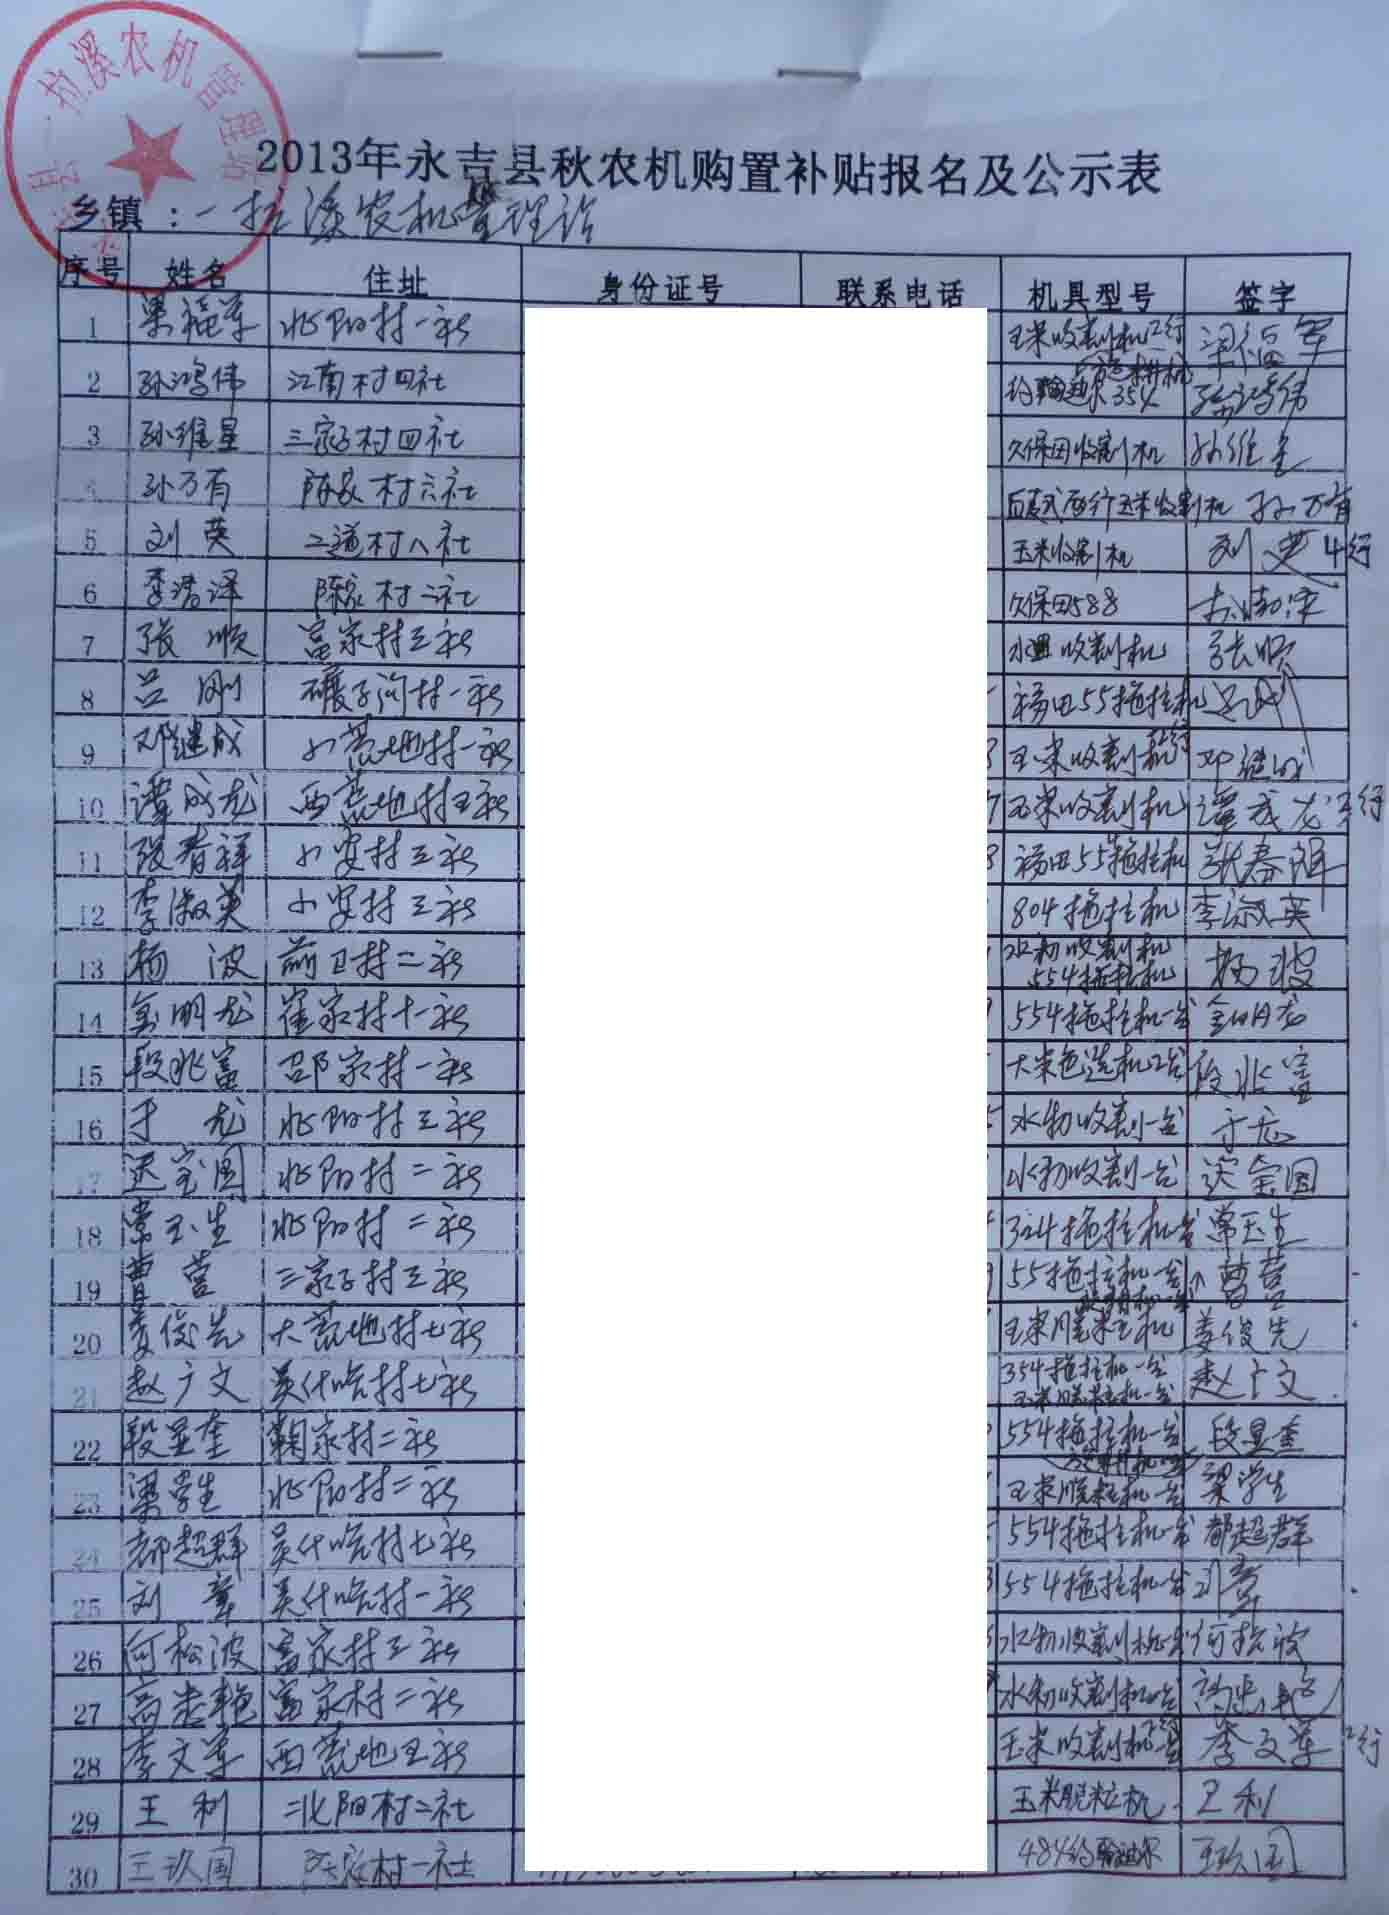 一拉溪农机管理站
2013年永吉县秋农机购置补贴报名及公示表
乡镇：一拉溪农机管理站
序号 姓名 住址 身份证号 联系电话 机具型号 签字
1 梁福军 北阳村一社 玉米收割机2行 梁福军
2 孙鸿伟 江南村四社 约翰迪尔354 旋耕机 孙鸿伟
3 孙维星 三家子村四社 久保田收割机 孙维星
4 孙万有 陈家村六社 玉米收割机 孙万有
5 刘英 二道村八社 玉米收割机 刘英 4行
6 李 泽 陈家村二社 久保田588
7 张顺 富家村三社 水田收割机 张顺
8 吕刚 碾子沟村一社 福田55拖拉机 吕刚
9 邓继成 小荒地村一社 玉米收割机 邓继成
10 谭成龙 西荒地村五社 玉米收割机 谭成龙 3行
11 张春祥 小安村三社 福田55拖拉机 张春祥
12 李淑英 小安村三社 804拖拉机 李淑英
13 杨波 前卫村二社 水稻收割机 554拖拉机 杨波
14 金明龙 崔家村十一社 554拖拉机一台 金明龙
15 段兆富 邵家村一社 大米色选机2台 段兆富
16 于龙 北阳村三社 水稻收割一台 于龙
17 宝国 北阳村二社 水稻收割一台 宝国
18 常玉生 北阳村二社 324拖拉机一台 常玉生
19 曹营 三家子村三社 55拖拉机一台 曹营
20 姜俊先 大荒地村七社 玉米脱粒机 姜俊先
21 赵广文 吴什哈村七社 354拖拉机一台 玉米脱粒机一台 赵广文
22 段显奎 鞠家村二社 554拖拉机一台 旋耕机一台 段显奎
23 梁学生 北阳村二社 玉米脱粒机一台 梁学生
24 都超群 吴什哈村七社 554拖拉机一台 都超群
25 刘章 吴什哈村一社 554拖拉机一台 刘章
26 何松波 富家村三社 水稻收割机一台 何松波
27 高 艳 富家村二社 水稻收割机一台
28 李文军 西荒地五社 玉米收割机一台 李文军 2行
29 王利 北阳村二社 玉米脱粒机 王利
30 王玖国 陈家村一社 484约翰迪尔 王玖国